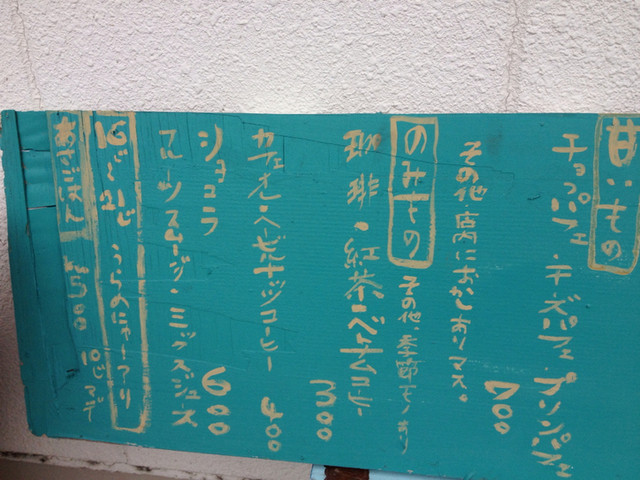 甘いもの
チョコパフェ・チーズパフェ・プリンパフェ
700
その他・店内におかしありマス。
のみもの
その他、季節モノあり
珈琲・紅茶・ベトナムコーヒー
300
カフェオレ・ヘーゼルナッツコーヒー
400
ショコラ
600
フルーツスムージー・ミックスジュース
16じ〜21じ うらの
あさごはん
500 10じマデ